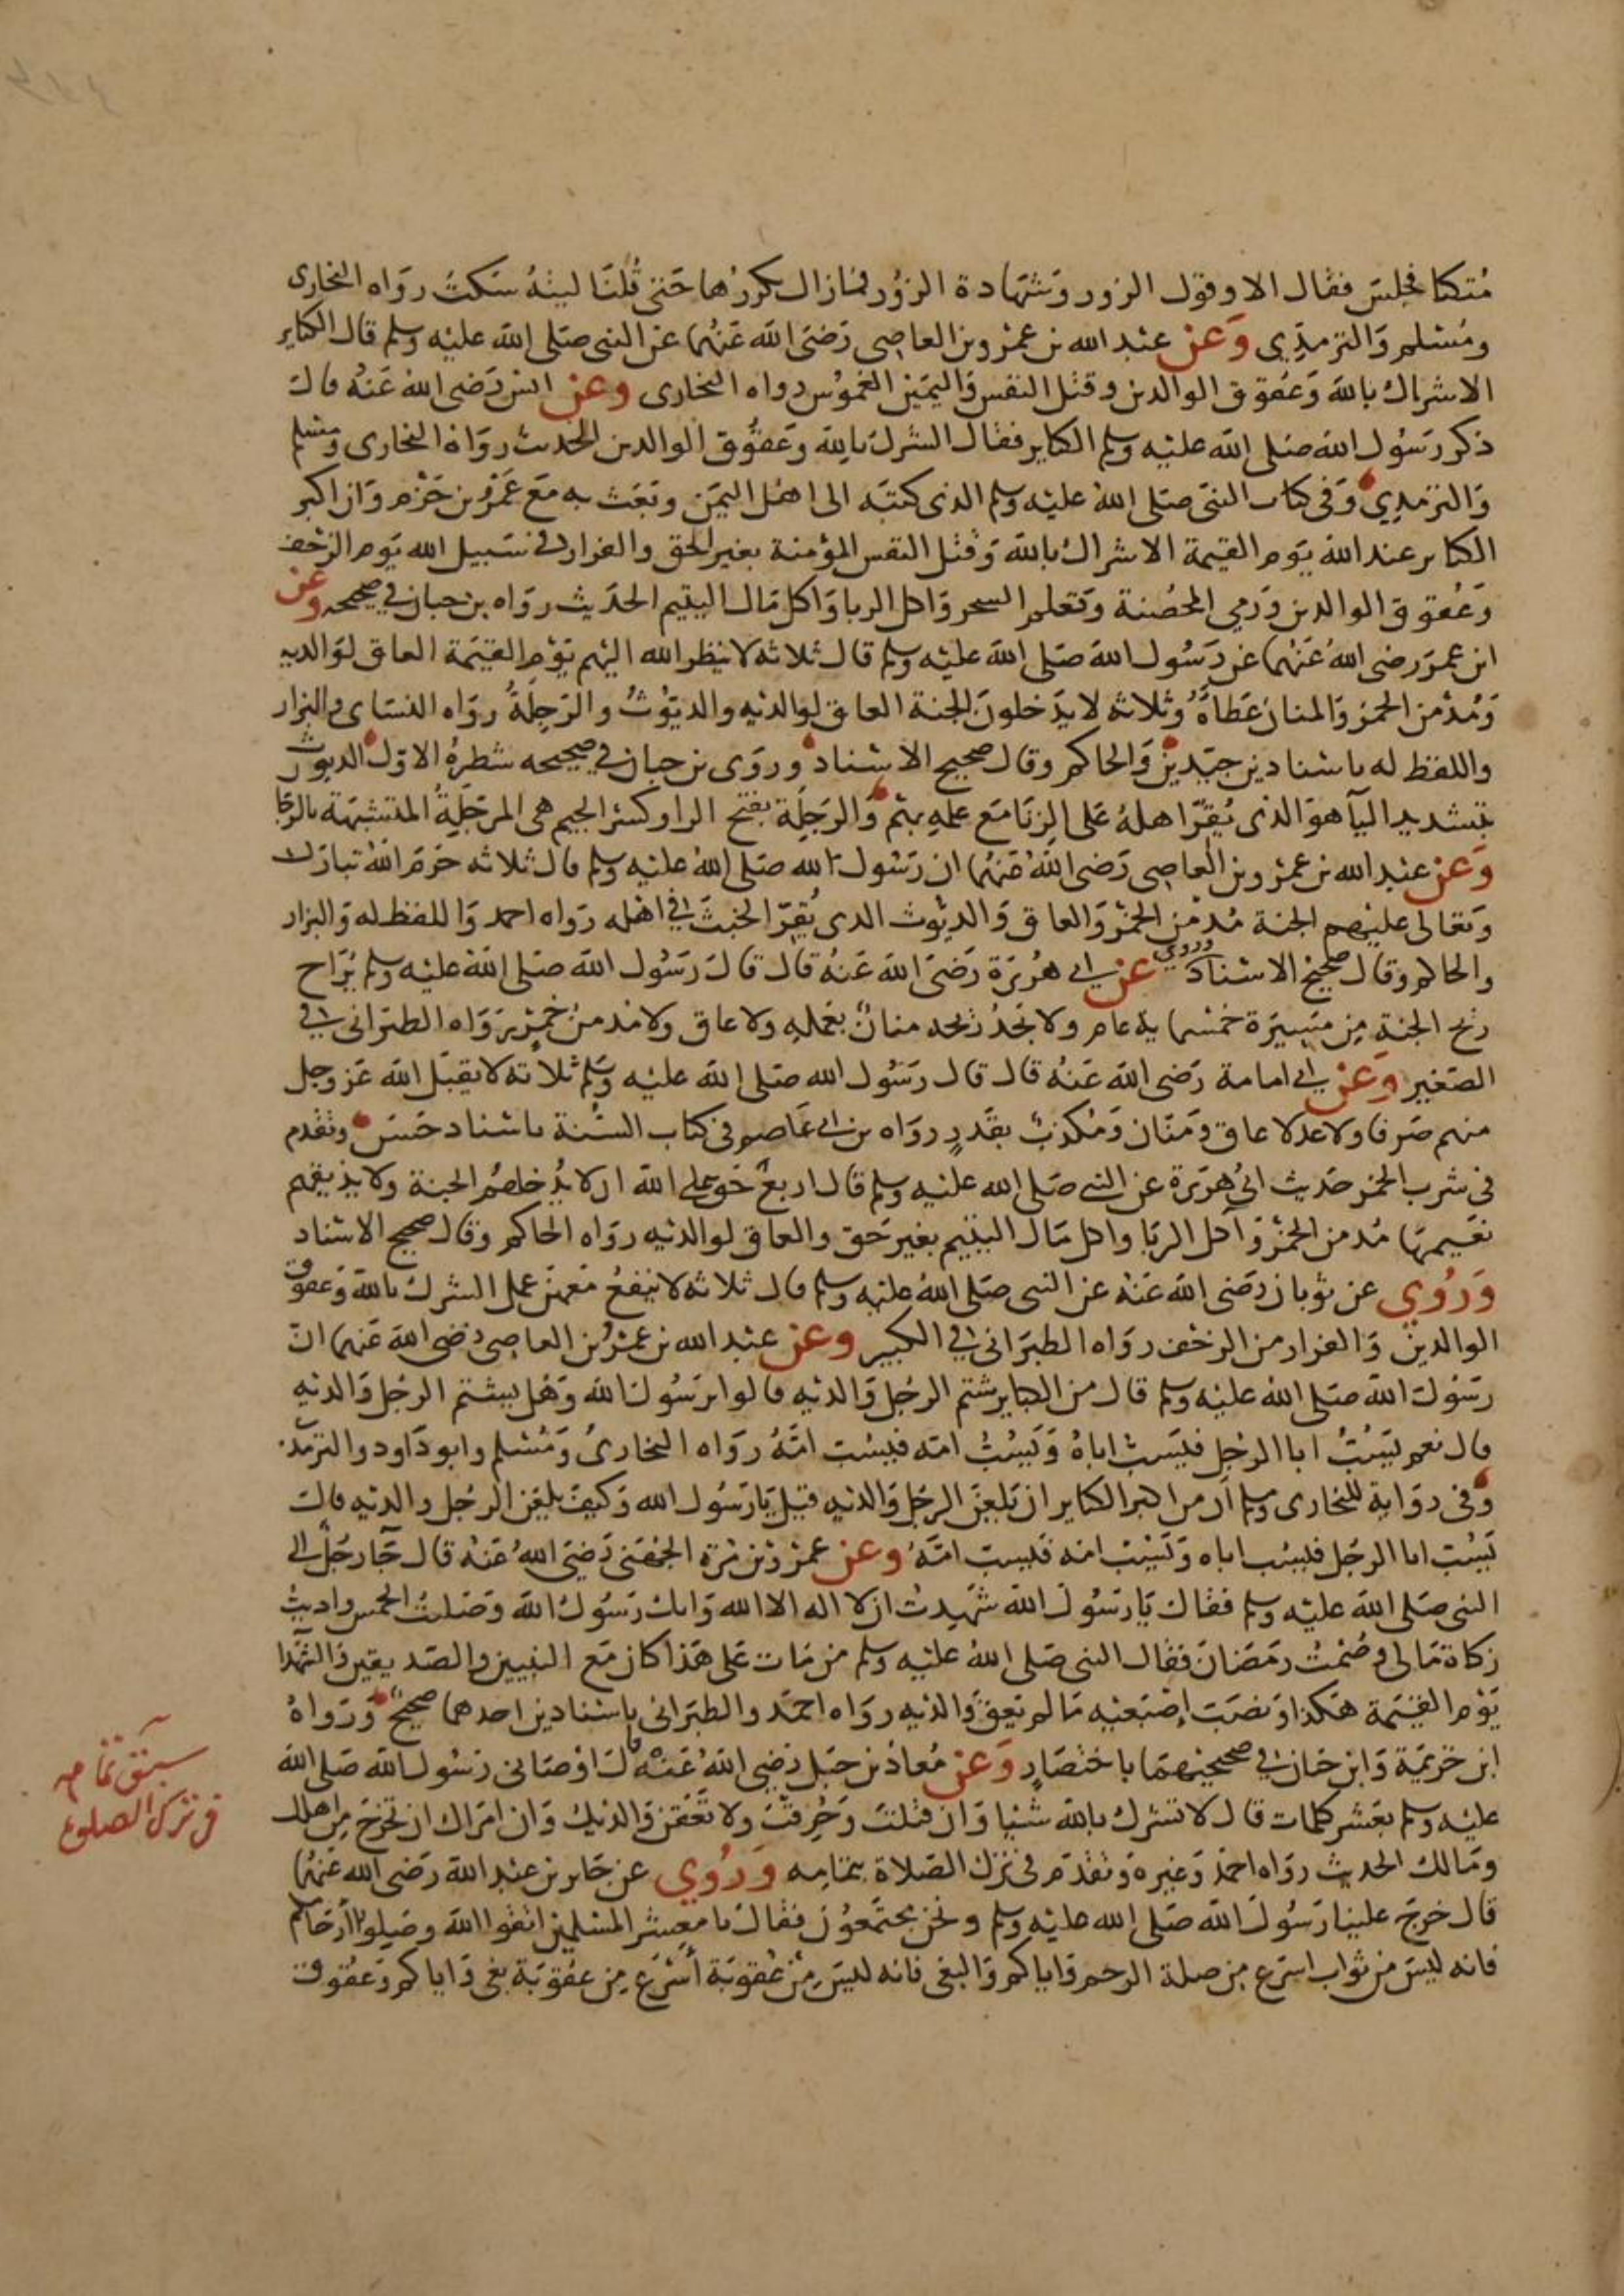 متكئا فجلس فقال الا وقول الزور وشهادة الزور فمازال يكررها حتى قلنا ليته سكت رواه البخارى
ومسلم والترمذي وعن عبد الله بن عمرو بن العاصى رضى الله عنهما عن النبى صلى الله عليه وسلم قال الكبائر
الاشراك بالله وعقوق الوالدين وقتل النفس واليمين الغموس رواه البخارى وعن انس رضى الله عنه قال
ذكر رسول الله صلى الله عليه وسلم الكبائر فقال الشرك بالله وعقوق الوالدين الحديث رواه البخارى ومسلم
والترمذي وفى كتاب النبى صلى الله عليه وسلم الذى كتبه الى اهل اليمن وبعث به مع عمرو بن حزم وان اكبر
الكبائر عند الله يوم القيمة الاشراك بالله وقتل النفس المؤمنة بغير الحق والفرار فى سبيل الله يوم الزحف
وعقوق الوالدين ورمي المحصنة وتعلم السحر واكل الربا واكل مال اليتيم الحديث رواه بن حبان في صحيحه وعن
ابن عمر رضى الله عنهما عن رسول الله صلى الله عليه وسلم قال ثلاثه لا ينظر الله اليهم يوم القيمة العاق لوالديه
ومدمن الخمر والمنان عطاه وثلاثه لا يدخلون الجنة العاق لوالديه والديوث والرجلة رواه النساى والبزار
واللفظ له باسنادين جيدين والحاكم وقال صحيح الاسناد وروى بن حبان في صحيحه شطره الاول الديوث
بتشديد اليآ هو الذى يقر اهله على الزنا مع علمه بهم والرجلة بفتح الرا وكسر الجيم هى المرجلة المتشبهة بالرجا
وعن عبد الله بن عمرو بن العاصى رضى الله عنهما ان رسول الله صلى الله عليه وسلم قال ثلاثه حرم الله تبارك
وتعالى عليهم الجنة مدمن الخمر والعاق والديوث الذى يقر الخبث في اهله رواه احمد واللفظ له والبزار
والحاكم وقال صحيح الاسناد وروي عن ابى هريرة رضى الله عنه قال قال رسول الله صلى الله عليه وسلم يراح
ريح الجنة من مسيرة خمسماية عام ولا يجد ريحه منان بعمله ولا عاق ولا مدمن خمر رواه الطبرانى في
الصغير وعن ابى امامة رضى الله عنه قال قال رسول الله صلى الله عليه وسلم ثلاثه لا يقبل الله عز وجل
منهم صرفا ولا عدلا عاق ومنان ومكذب بقدر رواه بن ابى عاصم فى كتاب السنة باسناد حسن وتقدم
فى شرب الخمر حديث ابي هريرة عن النبي صلى الله عليه وسلم قال اربع حق على الله ان لا يدخلهم الجنة ولا يذيقهم
نعيمها مدمن الخمر واكل الربا واكل مال اليتيم بغير حق والعاق لوالديه رواه الحاكم وقال صحيح الاسناد
وروي عن ثوبان رضى الله عنه عن النبى صلى الله عليه وسلم قال ثلاثه لا ينفع معهن عمل الشرك بالله وعقوق
الوالدين والفرار من الزحف رواه الطبرانى في الكبير وعن عبد الله بن عمرو بن العاصى رضى الله عنهما ان
رسول الله صلى الله عليه وسلم قال من الكبائر شتم الرجل والديه قالوا يرسول الله وهل يشتم الرجل والديه
قال نعم يسب ابا الرجل فيسب اباه ويسب امه فيسب امه رواه البخارى ومسلم وابو داود والترمذ
وفى رواية للبخارى ومسلم ان من اكبر الكبائر ان يلعن الرجل والديه قيل يارسول الله وكيف يلعن الرجل والديه قال
يسب ابا الرجل فيسب اباه ويسب امه فيسب امه وعن عمرو بن مرة الجهنى رضى الله عنه قال جآ رجل الى
النبى صلى الله عليه وسلم فقال يارسول الله شهدت ان لا اله الا الله وانك رسول الله وصليت الخمس واديت
زكاة مالى وصمت رمضان فقال النبى صلى الله عليه وسلم من مات على هذا كان مع النبيين والصديقين والشهدا
يوم القيمة هكذا ونصب اصبعيه مالم يعق والديه رواه احمد والطبرانى باسنادين احدهما صحيح ورواه
ابن خزيمة وابن حبان في صحيحيهما باختصار وعن معاذ بن جبل رضى الله عنه قال اوصانى رسول الله صلى الله
عليه وسلم بعشر كلمات قال لا تشرك بالله شيئا وان قتلت وحرقت ولا تعقن والديك وان امراك ان تخرج من اهلك
ومالك الحديث رواه احمد وغيره وتقدم فى ترك الصلاة بتمامه وروي عن جابر بن عبد الله رضى الله عنهما
قال خرج علينا رسول الله صلى الله عليه وسلم ونحن مجتمعون فقال يا معشر المسلمين اتقوا الله وصلوا ارحامكم
فانه ليس من ثواب اسرع من صلة الرحم واياكم والبغى فانه ليس من عقوبة اسرع من عقوبة بغى واياكم وعقوق
سبق تمامه
فى ترك الصلوة